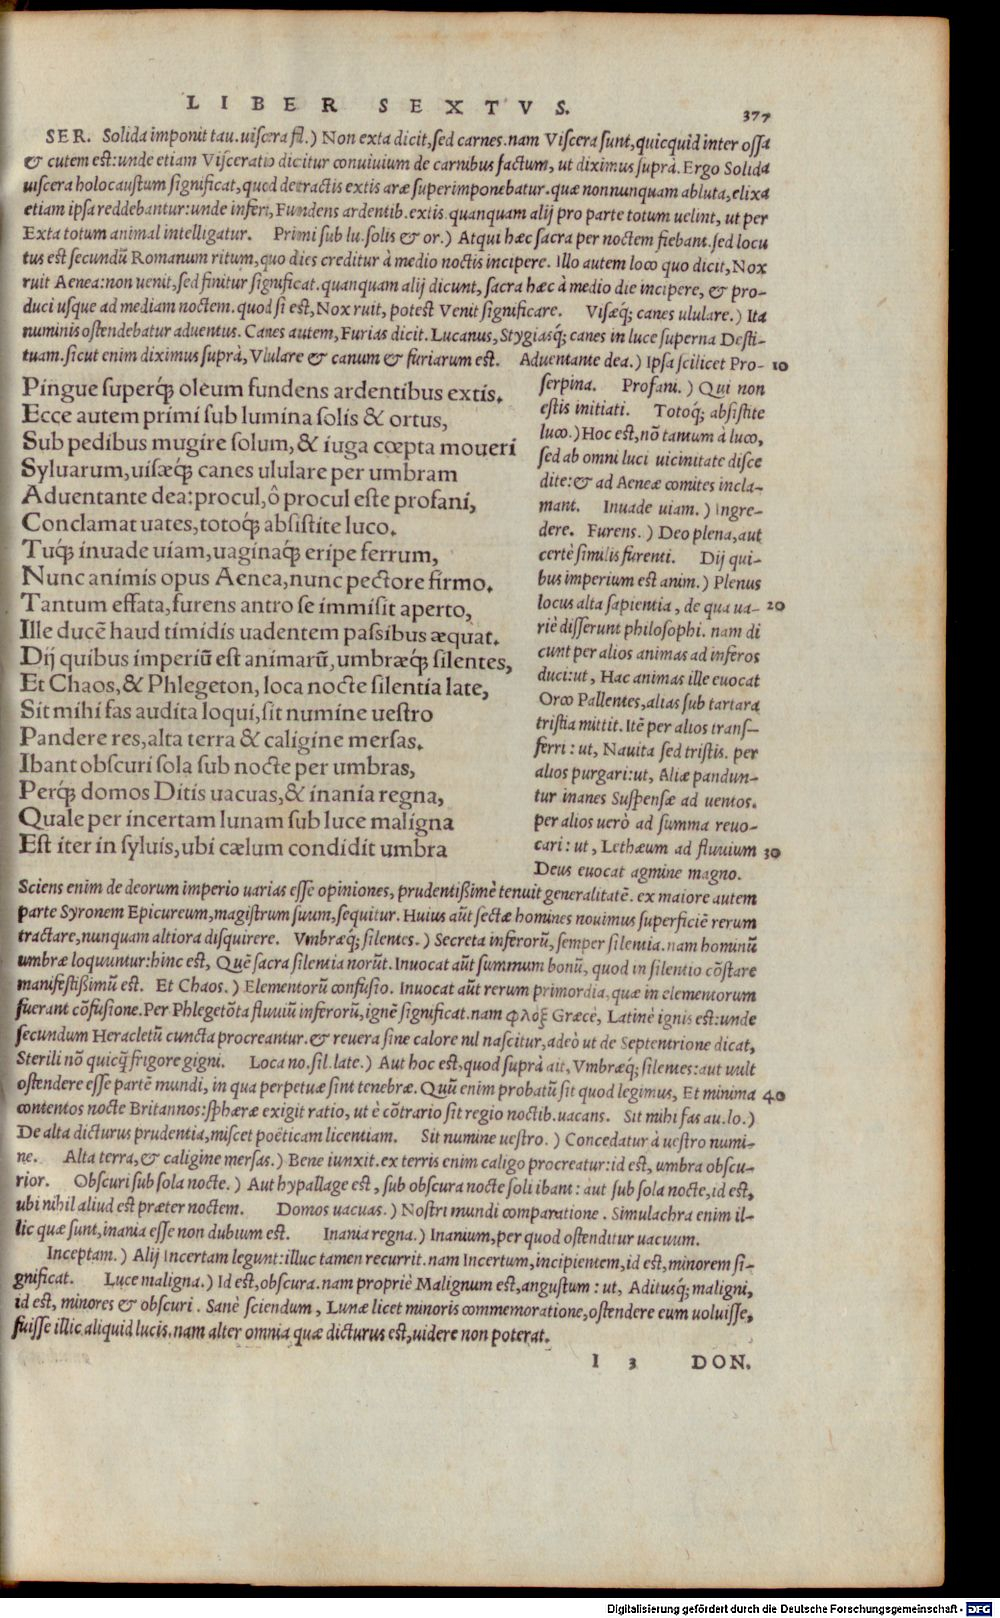 LIBER SEXTVS.
377
SER. Solida imponit tau. uiscera fl.) Non exta dicit, sed carnes. nam Viscera sunt, quicquid inter ossa
& cutem est: unde etiam Visceratio dicitur conuiuium de carnibus factum, ut diximus suprà. Ergo Solida
uiscera holocaustum significat, quod detractis extis aræ superimponebatur. quæ nonnunquam abluta, elixa
etiam ipsa reddebantur: unde inferi, Fundens ardentib. extis. quanquam alij pro parte totum uelint, ut per
Exta totum animal intelligatur. Primi sub lu. solis & or.) Atqui hæc sacra per noctem fiebant. sed locu
tus est secundũ Romanum ritum, quo dies creditur à medio noctis incipere. Illo autem loco quo dicit, Nox
ruit Aenea: non uenit, sed finitur significat. quanquam alij dicunt, sacra hæc à medio die incipere, & pro-
duci usque ad mediam noctem. quod si est, Nox ruit, potest Venit significare. Visæq; canes ululare.) Ita
numinis ostendebatur aduentus. Canes autem, Furias dicit. Lucanus, Stygiasq; canes in luce superna Desti-
tuam. sicut enim diximus suprà, Vlulare & canum & furiarum est. Aduentante dea.) Ipsa scilicet Pro- 10
Pingue superq; oleum fundens ardentibus extis.
Ecce autem primi sub lumina solis & ortus,
Sub pedibus mugire solum, & iuga cœpta moueri
Syluarum, uisæq; canes ululare per umbram
Aduentante dea: procul, ô procul este profani,
Conclamat uates, totoq; absistite luco.
Tuq; inuade uiam, uaginaq; eripe ferrum,
Nunc animis opus Aenea, nunc pectore firmo.
Tantum effata, furens antro se immisit aperto,
Ille ducẽ haud timidis uadentem passibus æquat.
Dij quibus imperiũ est animarũ, umbræq; silentes,
Et Chaos, & Phlegeton, loca nocte silentia late,
Sit mihi fas audita loqui, sit numine uestro
Pandere res, alta terra & caligine mersas.
Ibant obscuri sola sub nocte per umbras,
Perq; domos Ditis uacuas, & inania regna,
Quale per incertam lunam sub luce maligna
Est iter in syluis, ubi cælum condidit umbra
serpina. Profani.) Qui non
estis initiati. Totoq; absistite
luco.) Hoc est, nõ tantum à luco,
sed ab omni luci uicinitate disce
dite: & ad Aeneæ comites incla-
mant. Inuade uiam.) Ingre-
dere. Furens.) Deo plena, aut
certè similis furenti. Dij qui-
bus imperium est anim.) Plenus
locus alta sapientia, de qua ua- 20
riè disserunt philosophi. nam di
cunt per alios animas ad inferos
duci: ut, Hac animas ille euocat
Orco Pallentes, alias sub tartara
tristia mittit. Itẽ per alios trans-
ferri: ut, Nauita sed tristis. per
alios purgari: ut, Aliæ pandun-
tur inanes Suspensæ ad uentos.
per alios uerò ad summa reuo-
cari: ut, Lethæum ad fluuium 30
Deus euocat agmine magno.
Sciens enim de deorum imperio uarias esse opiniones, prudentißimè tenuit generalitatẽ. ex maiore autem
parte Syronem Epicureum, magistrum suum, sequitur. Huius aũt sectæ homines nouimus superficiẽ rerum
tractare, nunquam altiora disquirere. Vmbræq; silentes.) Secreta inferorũ, semper silentia. nam hominũ
umbræ loquuntur: hinc est, Quẽ sacra silentia norũt. Inuocat aũt summum bonũ, quod in silentio cõstare
manifestißimũ est. Et Chaos.) Elementorũ confusio. Inuocat aũt rerum primordia, quæ in elementorum
fuerant cõfusione. Per Phlegetõta fluuiũ inferorũ, ignẽ significat. nam φλὸξ Græcè, Latinè ignis est: unde
secundum Heracletũ cuncta procreantur. & reuera sine calore nil nascitur, adeò ut de Septentrione dicat,
Sterili nõ quicq̃ frigore gigni. Loca no. sil. late.) Aut hoc est, quod suprà ait, Vmbræq; silentes: aut uult
ostendere esse partẽ mundi, in qua perpetuæ sint tenebræ. Quũ enim probatũ sit quod legimus, Et minima 40
contentos nocte Britannos: sphæræ exigit ratio, ut è cõtrario sit regio noctib. uacans. Sit mihi fas au. lo.)
De alta dicturus prudentia, miscet poëticam licentiam. Sit numine uestro.) Concedatur à uestro numi-
ne. Alta terra, & caligine mersas.) Bene iunxit. ex terris enim caligo procreatur: id est, umbra obscu-
rior. Obscuri sub sola nocte.) Aut hypallage est, sub obscura nocte soli ibant: aut sub sola nocte, id est,
ubi nihil aliud est præter noctem. Domos uacuas.) Nostri mundi comparatione. Simulachra enim il-
lic quæ sunt, inania esse non dubium est. Inania regna.) Inanium, per quod ostenditur uacuum.
Inceptam.) Alij Incertam legunt: illuc tamen recurrit. nam Incertum, incipientem, id est, minorem si-
gnificat. Luce maligna.) Id est, obscura. nam propriè Malignum est, angustum: ut, Aditusq; maligni,
id est, minores & obscuri. Sanè sciendum, Lunæ licet minoris commemoratione, ostendere eum uoluisse,
fuisse illic aliquid lucis. nam alter omnia quæ dicturus est, uidere non poterat.
I 3 DON.
Digitalisierung gefördert durch die Deutsche Forschungsgemeinschaft - DFG